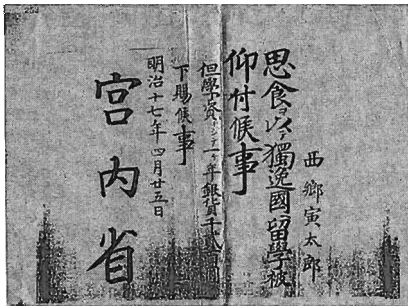 西郷寅太郎
思食ヲ以テ獨逸國留學被
仰付候事
但學資トシテ一ヶ年銀貨千
下賜候事
明治十七年四月廿五日
宮内省